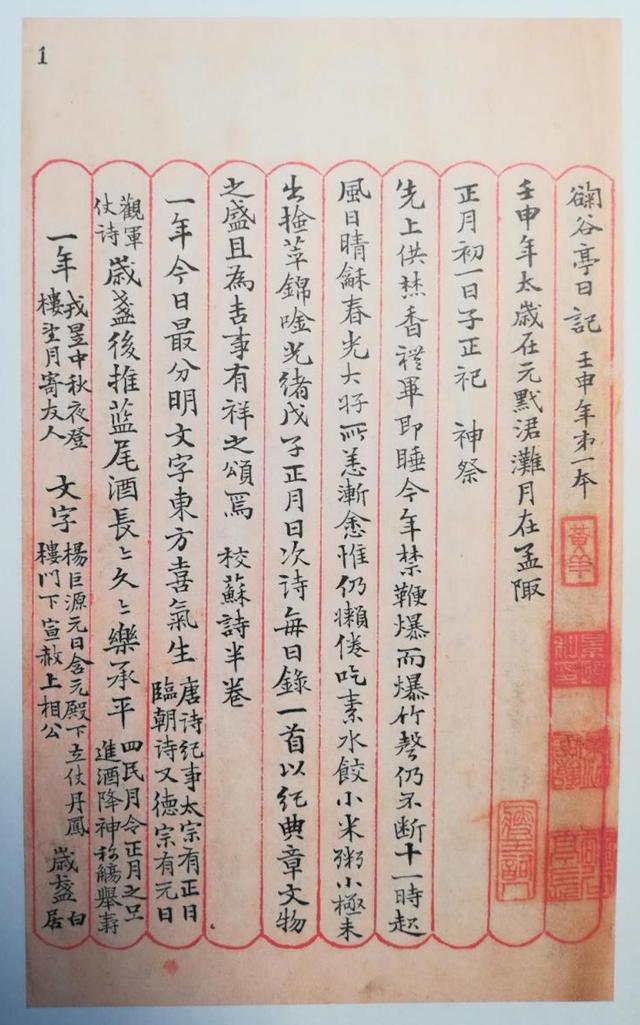 1
籋谷亭日記 壬申年第一本
黃羊
壬申年太歲在元默涒灘月在孟陬
正月初一日子正祀 神祭
先上供焚香禮畢即睡今年禁鞭爆而爆竹聲仍不斷十一時起
風日晴龢春光大好所恙漸愈惟仍懶倦吃素水餃小米粥小極未
出撿萃錦唫光緒戊子正月日次詩每日錄一首以紀典章文物
之盛且為吉事有祥之頌焉 校蘇詩半卷
一年今日最分明文字東方喜氣生 唐詩紀事太宗有正日
臨朝詩又德宗有元日
觀軍
仗詩 歲盞後推藍尾酒長〻久〻樂承平 四民月令正月之旦
進酒降神称觴舉壽
一年 戎昱中秋夜登
樓望月寄友人 文字 楊巨源元日含元殿下立仗丹鳳
樓門下宣赦上相公 歲盞 白
居